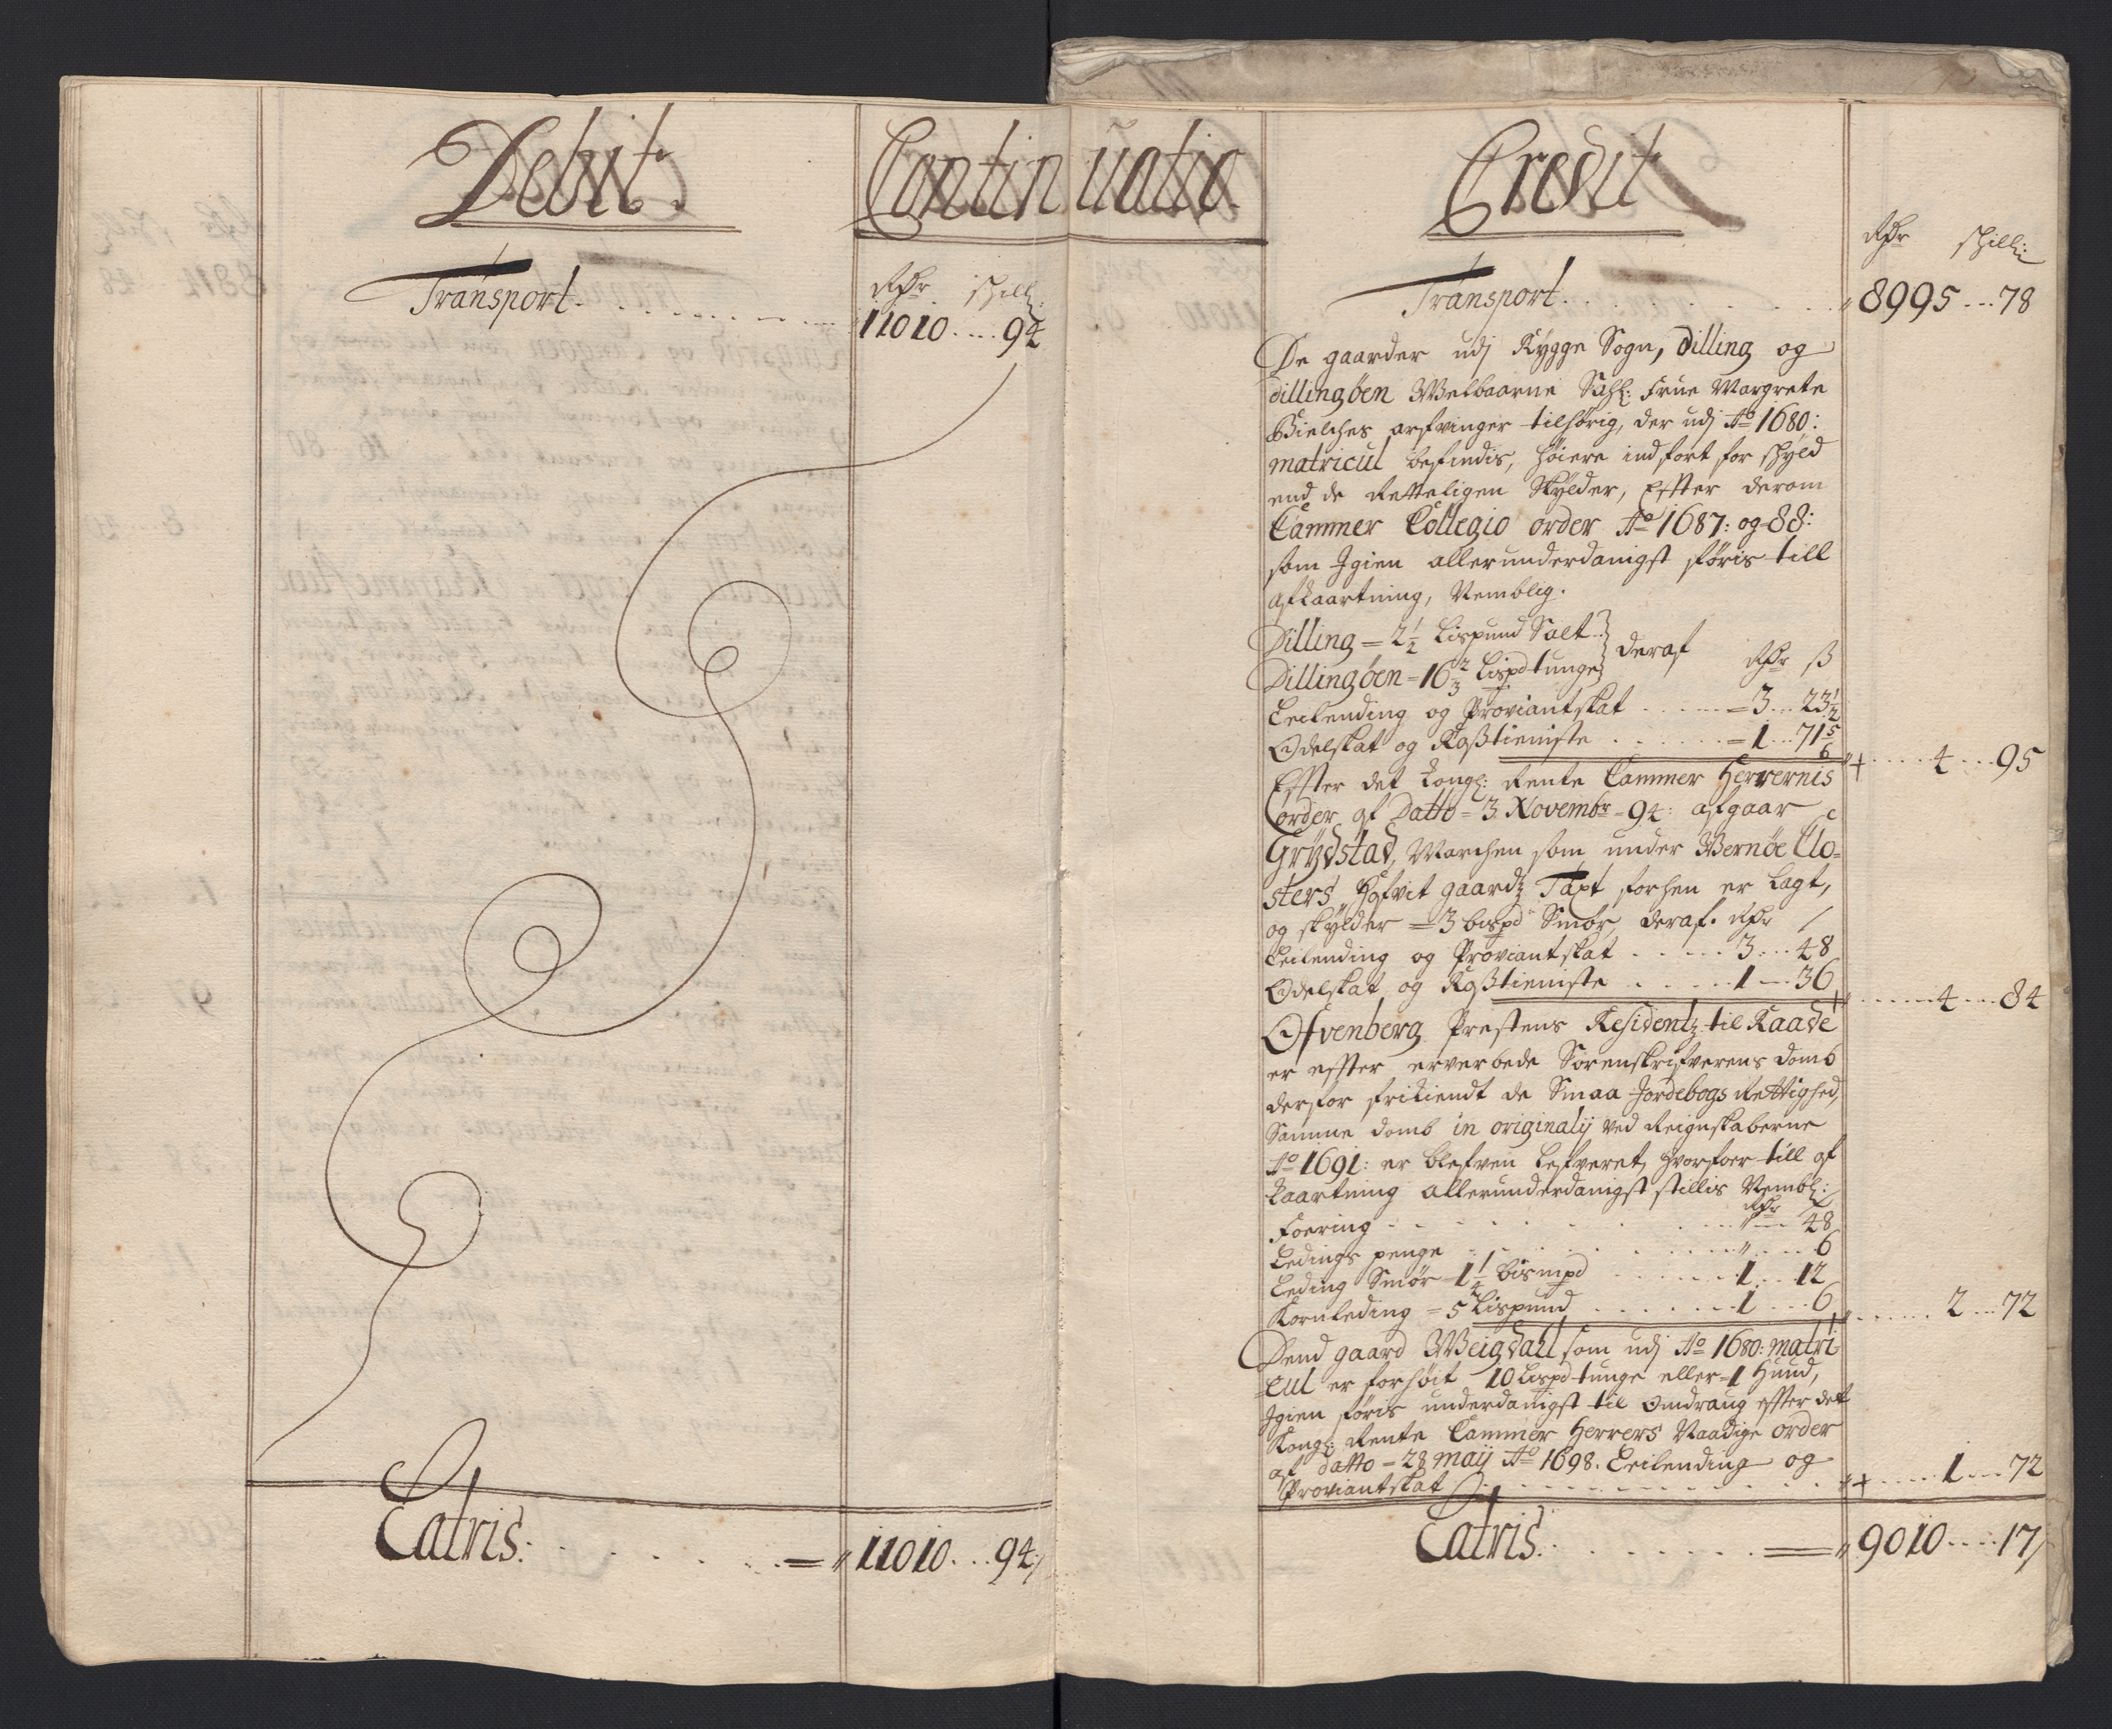 Debit.
Continuatio.
Rdr schill:
Transport. 11010....94
Latris. = 11010...94
Credit
Rdr schill:
Transport. 8995...78
De gaarder udj Rygge Sogn, Dilling og
Dillingøen Welbaarne Sahl: Frue Margrete
Bielches arfvinger tilhørig, der udj Ao 1680:
matricul befindis, høiere indført for schyld
end de Retteligen Skylder, Effter derom
Cammer Collegio order Ao 1687: og 88:
som Igien allerunderdanigst føris till
afkaartning, Nemblig.
Dilling = 2½ Lispund Salt } deraf Rdr ß
Dillingøen = 16⅔ Lispd tunge }
Leilending og Proviantskat = 3...23½
Odelskat og Roßtieniste = 1...71⅚
4...95
Effter det kongl: Rente Cammer Herrernis
order af Datto = 3 Novembr = 94: afgaar
Grydstad, Marchen som under Wernøe Clo=
sters Hofvit gaardz Taxt forhen er lagt,
og skylder = 3 bispd Smør, deraf. Rdr
Leilending og Proviantskat 3...48
Odelskat og Roßtieniste 1...36
4...84
Ofvenberg Prestens Residentz til Raade
er effter erverbede Sorenskrifverens domb
derfor frikiendt de Smaa Jordebogs Rettighed,
Samme domb in originalij ved Reignskaberne
Ao 1691: er blefven lefveret, hvorfoer till af
kaartning allerunderdanigst stillis Nembl:
Rdr
Foering 48
Ledings penge 6
Leding Smør 1¼ bismpd 1...12
Kornleding = 5 Lispund 1...6
2...72
Dend gaard Weigdahl som udj Ao 1680: matri
cul er forhøit 10 Lispd tunge eller 1 Huud,
Igien føris underdanigst til Omdraug effter det
Kongl: Rente Cammer Herrers Naadige order
af datto = 28 maij Ao 1698. Leilending og
Proviantskat 1...72
Latris. = 9010....17